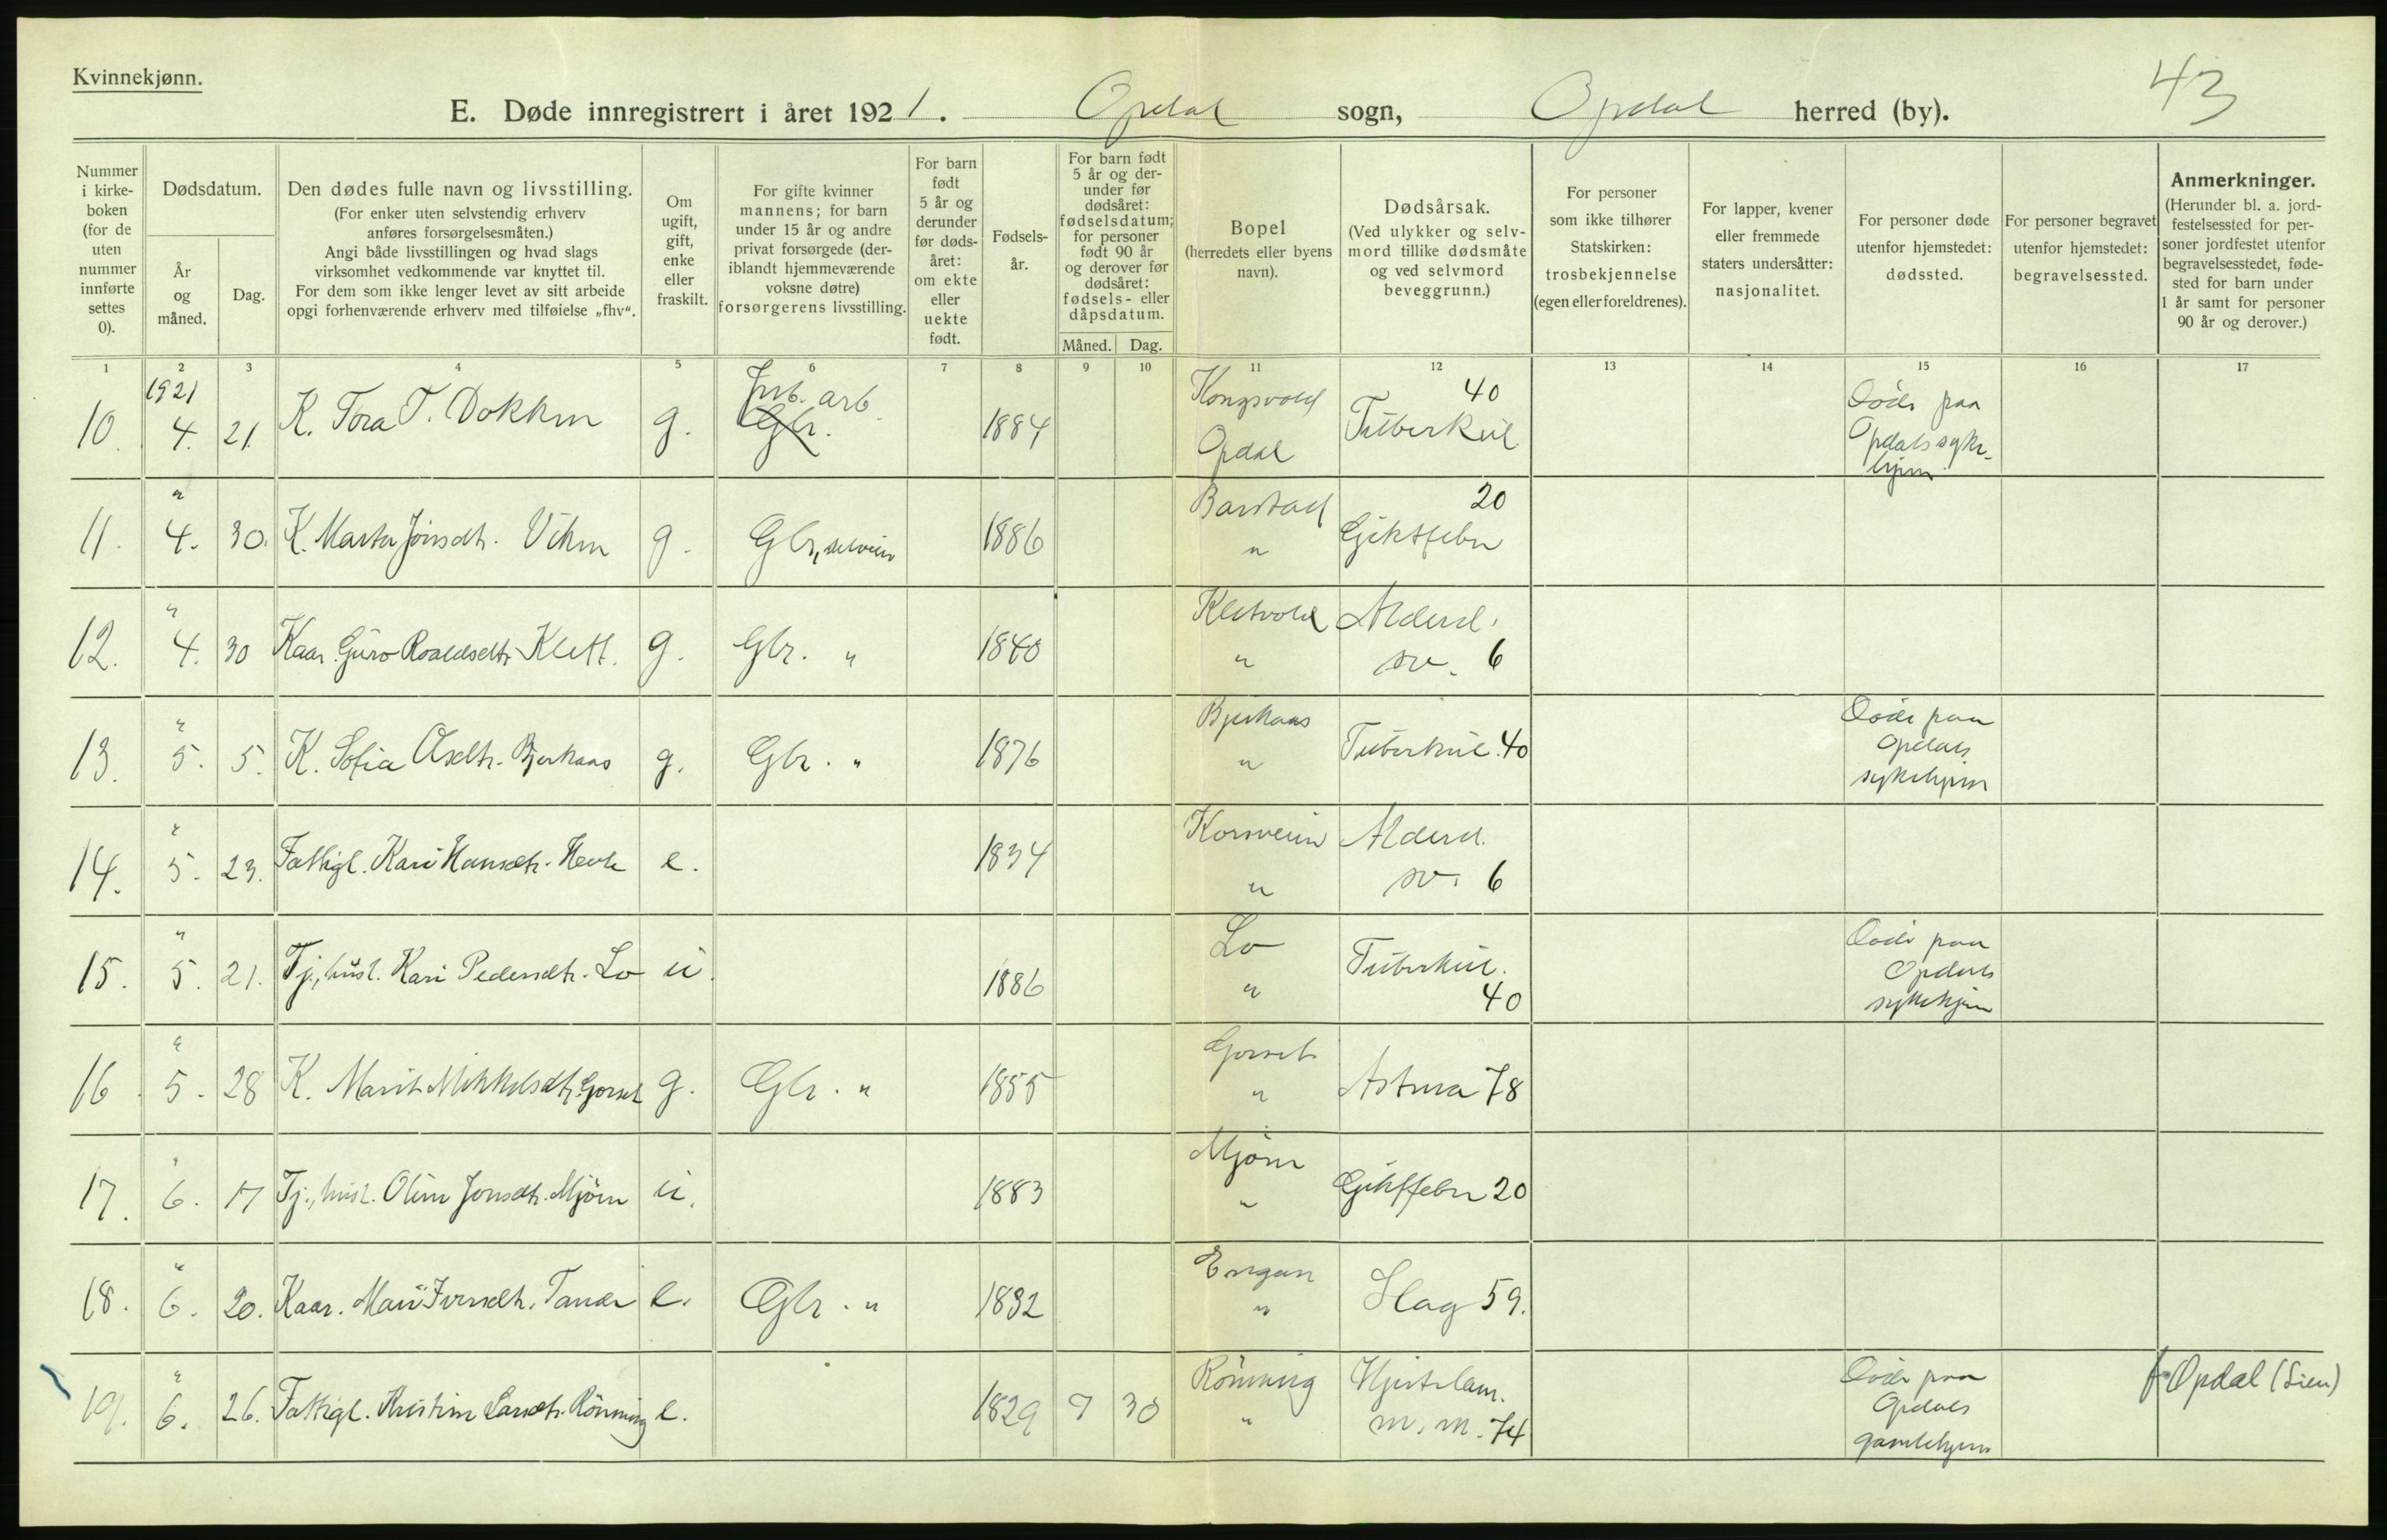 Kvinnekjønn.
43
E. Døde innregistrert i året 1921. Opdal sogn, Opdal herred (by).
Nummer i kirke-boken (for de uten nummer innførte settes 0).
Dødsdatum.
År og måned.
Dag.
Den dødes fulle navn og livsstilling.
(For enker uten selvstendig erhverv anføres forsørgelsesmåten.)
Angi både livsstillingen og hvad slags virksomhet vedkommende var knyttet til.
For dem som ikke lenger levet av sitt arbeide opgi forhenværende erhverv med tilføielse „fhv“.
Om ugift, gift, enke eller fraskilt.
For gifte kvinner mannens; for barn under 15 år og andre privat forsørgede (der-iblandt hjemmeværende voksne døtre) forsørgerens livsstilling.
For barn født 5 år og derunder før døds-året: om ekte eller uekte født.
Fødsels-år.
For barn født 5 år og der-under før dødsåret: fødselsdatum; for personer født 90 år og derover før dødsåret: fødsels- eller dåpsdatum.
Måned. Dag.
Bopel
(herredets eller byens navn).
Dødsårsak.
(Ved ulykker og selv-mord tillike dødsmåte og ved selvmord beveggrunn.)
For personer som ikke tilhører Statskirken: trosbekjennelse (egen eller foreldrenes).
For lapper, kvener eller fremmede staters undersåtter: nasjonalitet.
For personer døde utenfor hjemstedet: dødssted.
For personer begravet utenfor hjemstedet: begravelsessted.
Anmerkninger.
(Herunder bl. a. jord-festelsessted for per-soner jordfestet utenfor begravelsesstedet, føde-sted for barn under 1 år samt for personer 90 år og derover.)
1 2 3 4 5 6 7 8 9 10 11 12 13 14 15 16 17
10. 1921 4. 21. K. Tora T. Dokken g. arb. Glr. 1884 Kongsvold Opdal Tuberkul. 40 Döde paa Opdals syke-hjem
11. " 4. 30. K. Marta Jonsdtr. Viken g. Gbr, selveier 1886 Barstad " Giktfeber 20
12. " 4. 30 Kaar. Guro Roaldsdtr. Klett. g. Gbr. " 1840 Kletvold " Alderd. sv. 6
13. " 5. 5. K. Sofia Olsdtr. Bjerkaas g. Gbr. " 1876 Bjerkaas " Tuberkul. 40 Döde paa Opdals sykehjem
14. " 5. 23. Fattigl. Kari Hansdtr. e. 1834 " Alderd. sv. 6
15. " 5. 21. Tj., husl. Kari Pedersdtr. Lo u. 1886 Lo " Tuberkul. 40 Döde paa Opdals sykehjem
16. " 5. 28 K. Marit Mikkelsdtr. Gorset g. Gbr. " 1855 Gorset " Astma 78
17. " 6. 17 Tj., husl. Oline Jonsdtr. Mjöen u. 1883 Mjöen " Giktfeber 20
18. " 6. 20. Kaar. Mari Iversdtr. e. Gbr. " 1832 Engan " Slag 59.
19. " 6. 26. Fattigl. Kristine Larsdtr. Rönning e. 1829 9 30 Rönning " Hjertelam. m. m. 74 Döde paa Opdals gamlehjem f. Opdal